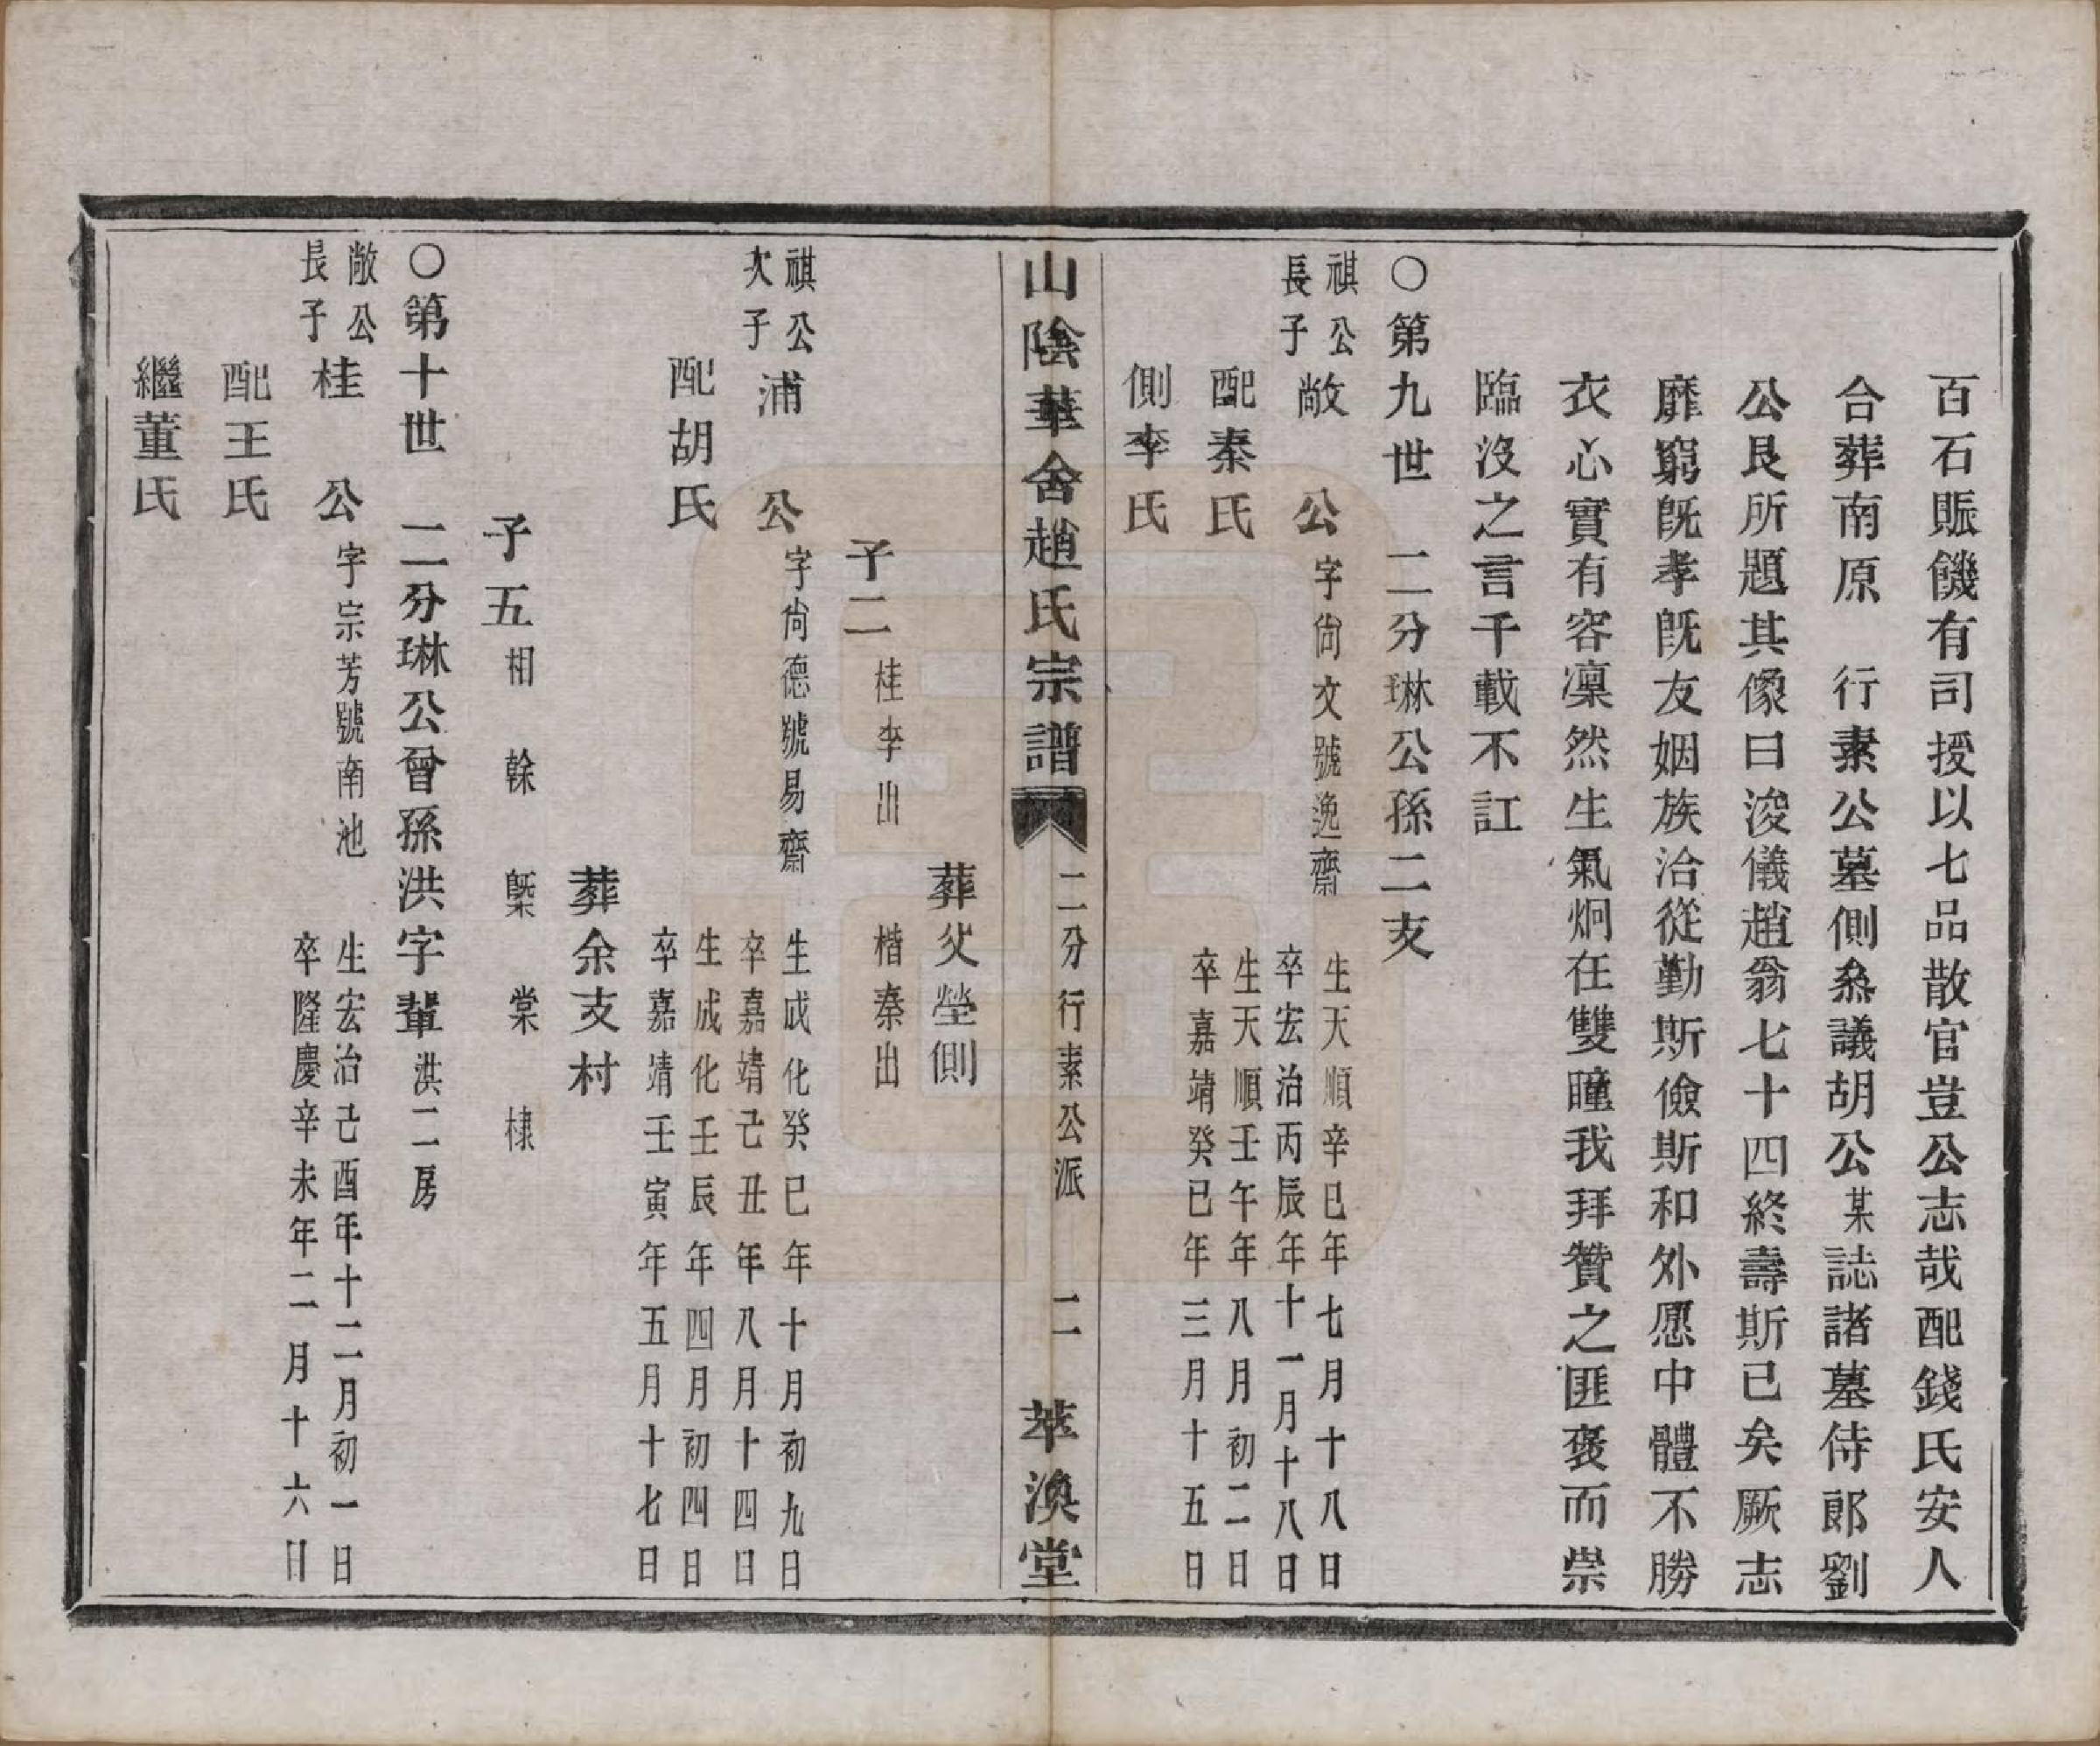 百石賑饑有司授以七品散官豈公志哉配錢氏安人
合葬南原　行素公墓側叅議胡公某誌諸墓侍郎劉
公艮所題其像曰浚儀趙翁七十四終壽斯已矣厥志
靡窮旣孝旣友姻族洽從勤斯儉斯和外愿中體不勝
衣心實有容凜然生氣炯在雙瞳我拜贊之匪褒而崇
臨沒之言千載不訌
○第九世　二分琳公孫二支
祺公
長子
敞　公
字尙文號逸齋
生天順辛巳年七月十八日
卒宏治丙辰年十一月十八日
配秦氏
生天順壬午年八月初二日
卒嘉靖癸巳年三月十五日
側李氏
山陰華舍趙氏宗譜
二分行素公派　二
萃渙堂
葬父塋側
子二
桂李出　楷秦出
祺公
次子
浦　公
字尙德號易齋
生成化癸巳年十月初九日
卒嘉靖己丑年八月十四日
配胡氏
生成化壬辰年四月初四日
卒嘉靖壬寅年五月十七日
葬余支村
子五
相　榦　槩　棠　棣
○第十世　二分琳公曾孫洪字輩洪二房
敞公
長子
桂　公
字宗芳號南池
生宏治己酉年十二月初一日
卒隆慶辛未年二月十六日
配王氏
繼董氏